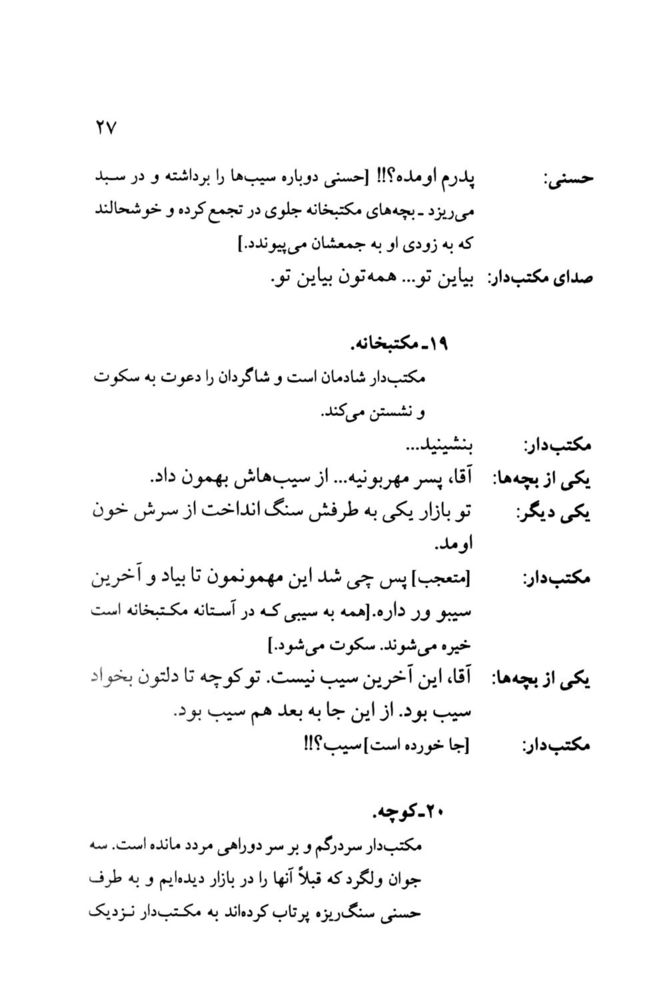 ۲۷
حسنی: پدرم اومده؟!! [حسنی دوباره سیب‌ها را برداشته و در سبد
می‌ریزد ـ بچه‌های مکتبخانه جلوی در تجمع کرده و خوشحالند
که به زودی او به جمعشان می‌پیوندد.]
صدای مکتب‌دار: بیاین تو... همه‌تون بیاین تو.
۱۹ـ مکتبخانه.
مکتب‌دار شادمان است و شاگردان را دعوت به سکوت
و نشستن می‌کند.
مکتب‌دار: بنشینید...
یکی از بچه‌ها: آقا، پسر مهربونیه... از سیب‌هاش بهمون داد.
یکی دیگر: تو بازار یکی به طرفش سنگ انداخت از سرش خون
اومد.
مکتب‌دار: [متعجب] پس چی شد این مهمونمون تا بیاد و آخرین
سیبو ور داره.[همه به سیبی که در آستانه مکتبخانه است
خیره می‌شوند. سکوت می‌شود.]
یکی از بچه‌ها: آقا، این آخرین سیب نیست. تو کوچه تا دلتون بخواد
سیب بود. از این جا به بعد هم سیب بود.
مکتب‌دار: [جا خورده است] سیب؟!!
۲۰ـ کوچه.
مکتب‌دار سردرگم و بر سر دوراهی مردد مانده است. سه
جوان ولگرد که قبلاً آنها را در بازار دیده‌ایم و به طرف
حسنی سنگ‌ریزه پرتاب کرده‌اند به مکتب‌دار نزدیک